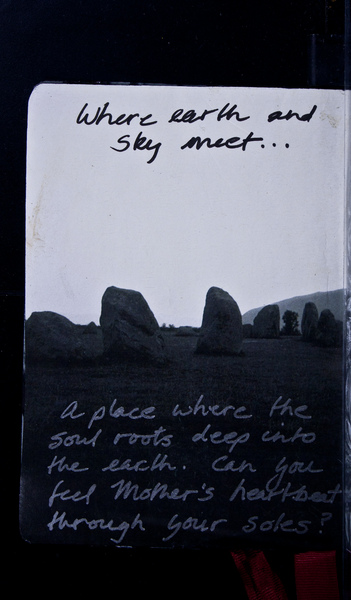 Where earth and
sky meet...
A place where the
soul roots deep into
the earth. Can you
feel Mother's heartbeat
through your soles?